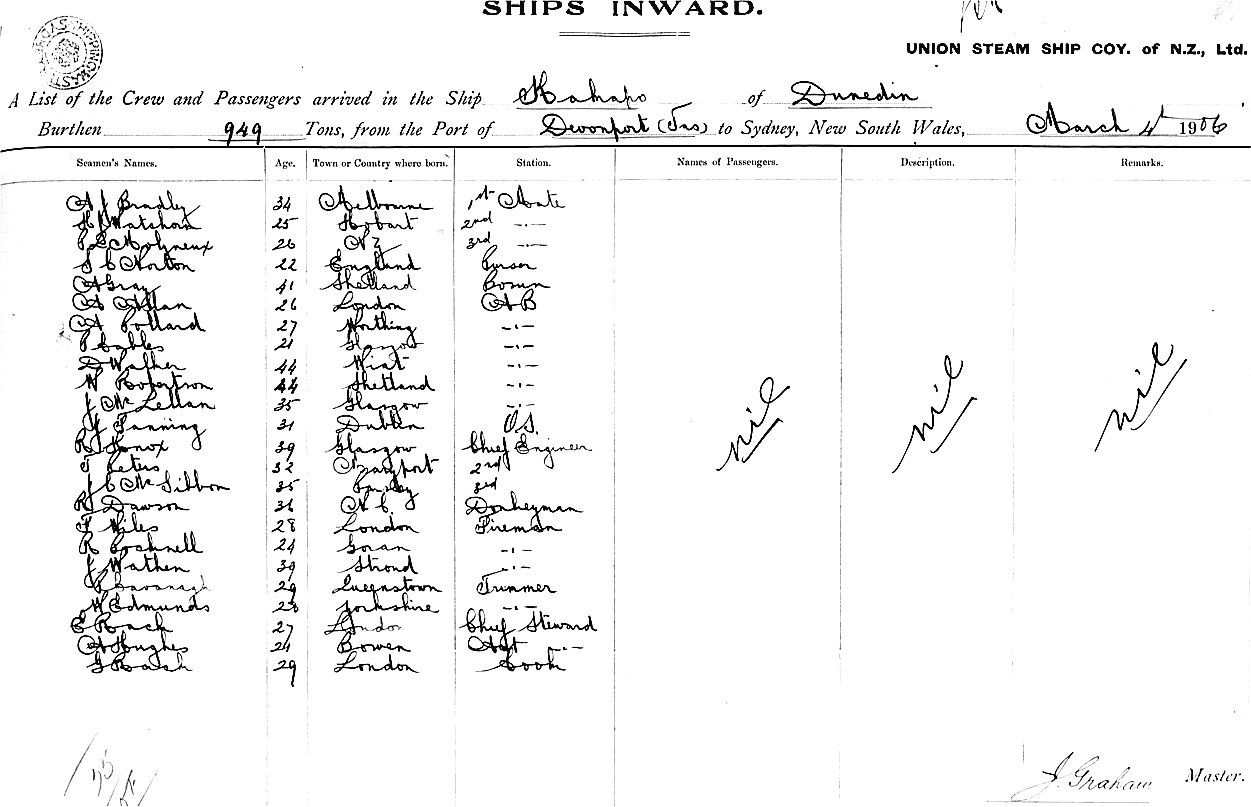 SHIPS INWARD.
UNION STEAM SHIP COY. of N.Z., Ltd.
A List of the Crew and Passengers arrived in the Ship Kahapo of Dunedin
Burthen 949 Tons, from the Port of Devonport (Tas) to Sydney, New South Wales, March 4th 1906
Seamen's Names. Age. Town or Country where born. Station. Names of Passengers. Description. Remarks.
A J Bradley 34 Melbourne 1st Mate
H J Watchorn 25 Hobart 2nd -·-
P L Molyneux 26 NZ 3rd -·-
S C Norton 22 England Purser
A Gray 41 Shetland Bosun
A Allan 26 London AB
A Pollard 27 Worthing -·-
P 21 Glasgow -·-
D Walker 44 -·-
W Robertson 44 Shetland -·-
J McLellan 35 Glasgow -·-
Fanning 31 Dublin O.S.
R Knox 39 Glasgow Chief Engineer
T Peters 32 Maryport 2nd
J C McGibbon 35 3rd
R Dawson 36 Donkeyman
T Niles 28 London Fireman
R Cocknell 24 -·-
J Wathen 39 Stroud -·-
P Cavanagh 29 Queenstown Trimmer
W Edmunds 23 Yorkshire -·-
E Rack 27 London Chief Steward
A Hughes 24 Bowen Ast -·-
G Rash 29 London Cook
nil nil nil
J. Graham Master.